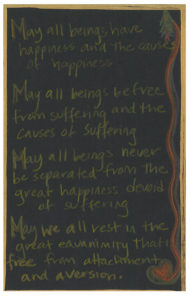 May all beings have
happiness and the causes
of happiness
May all beings be free
from suffering and the
causes of suffering
May all beings never
be separated from the
great happiness devoid
of suffering
May we all rest in the
great equanimity that is
free from attachment
and aversion.